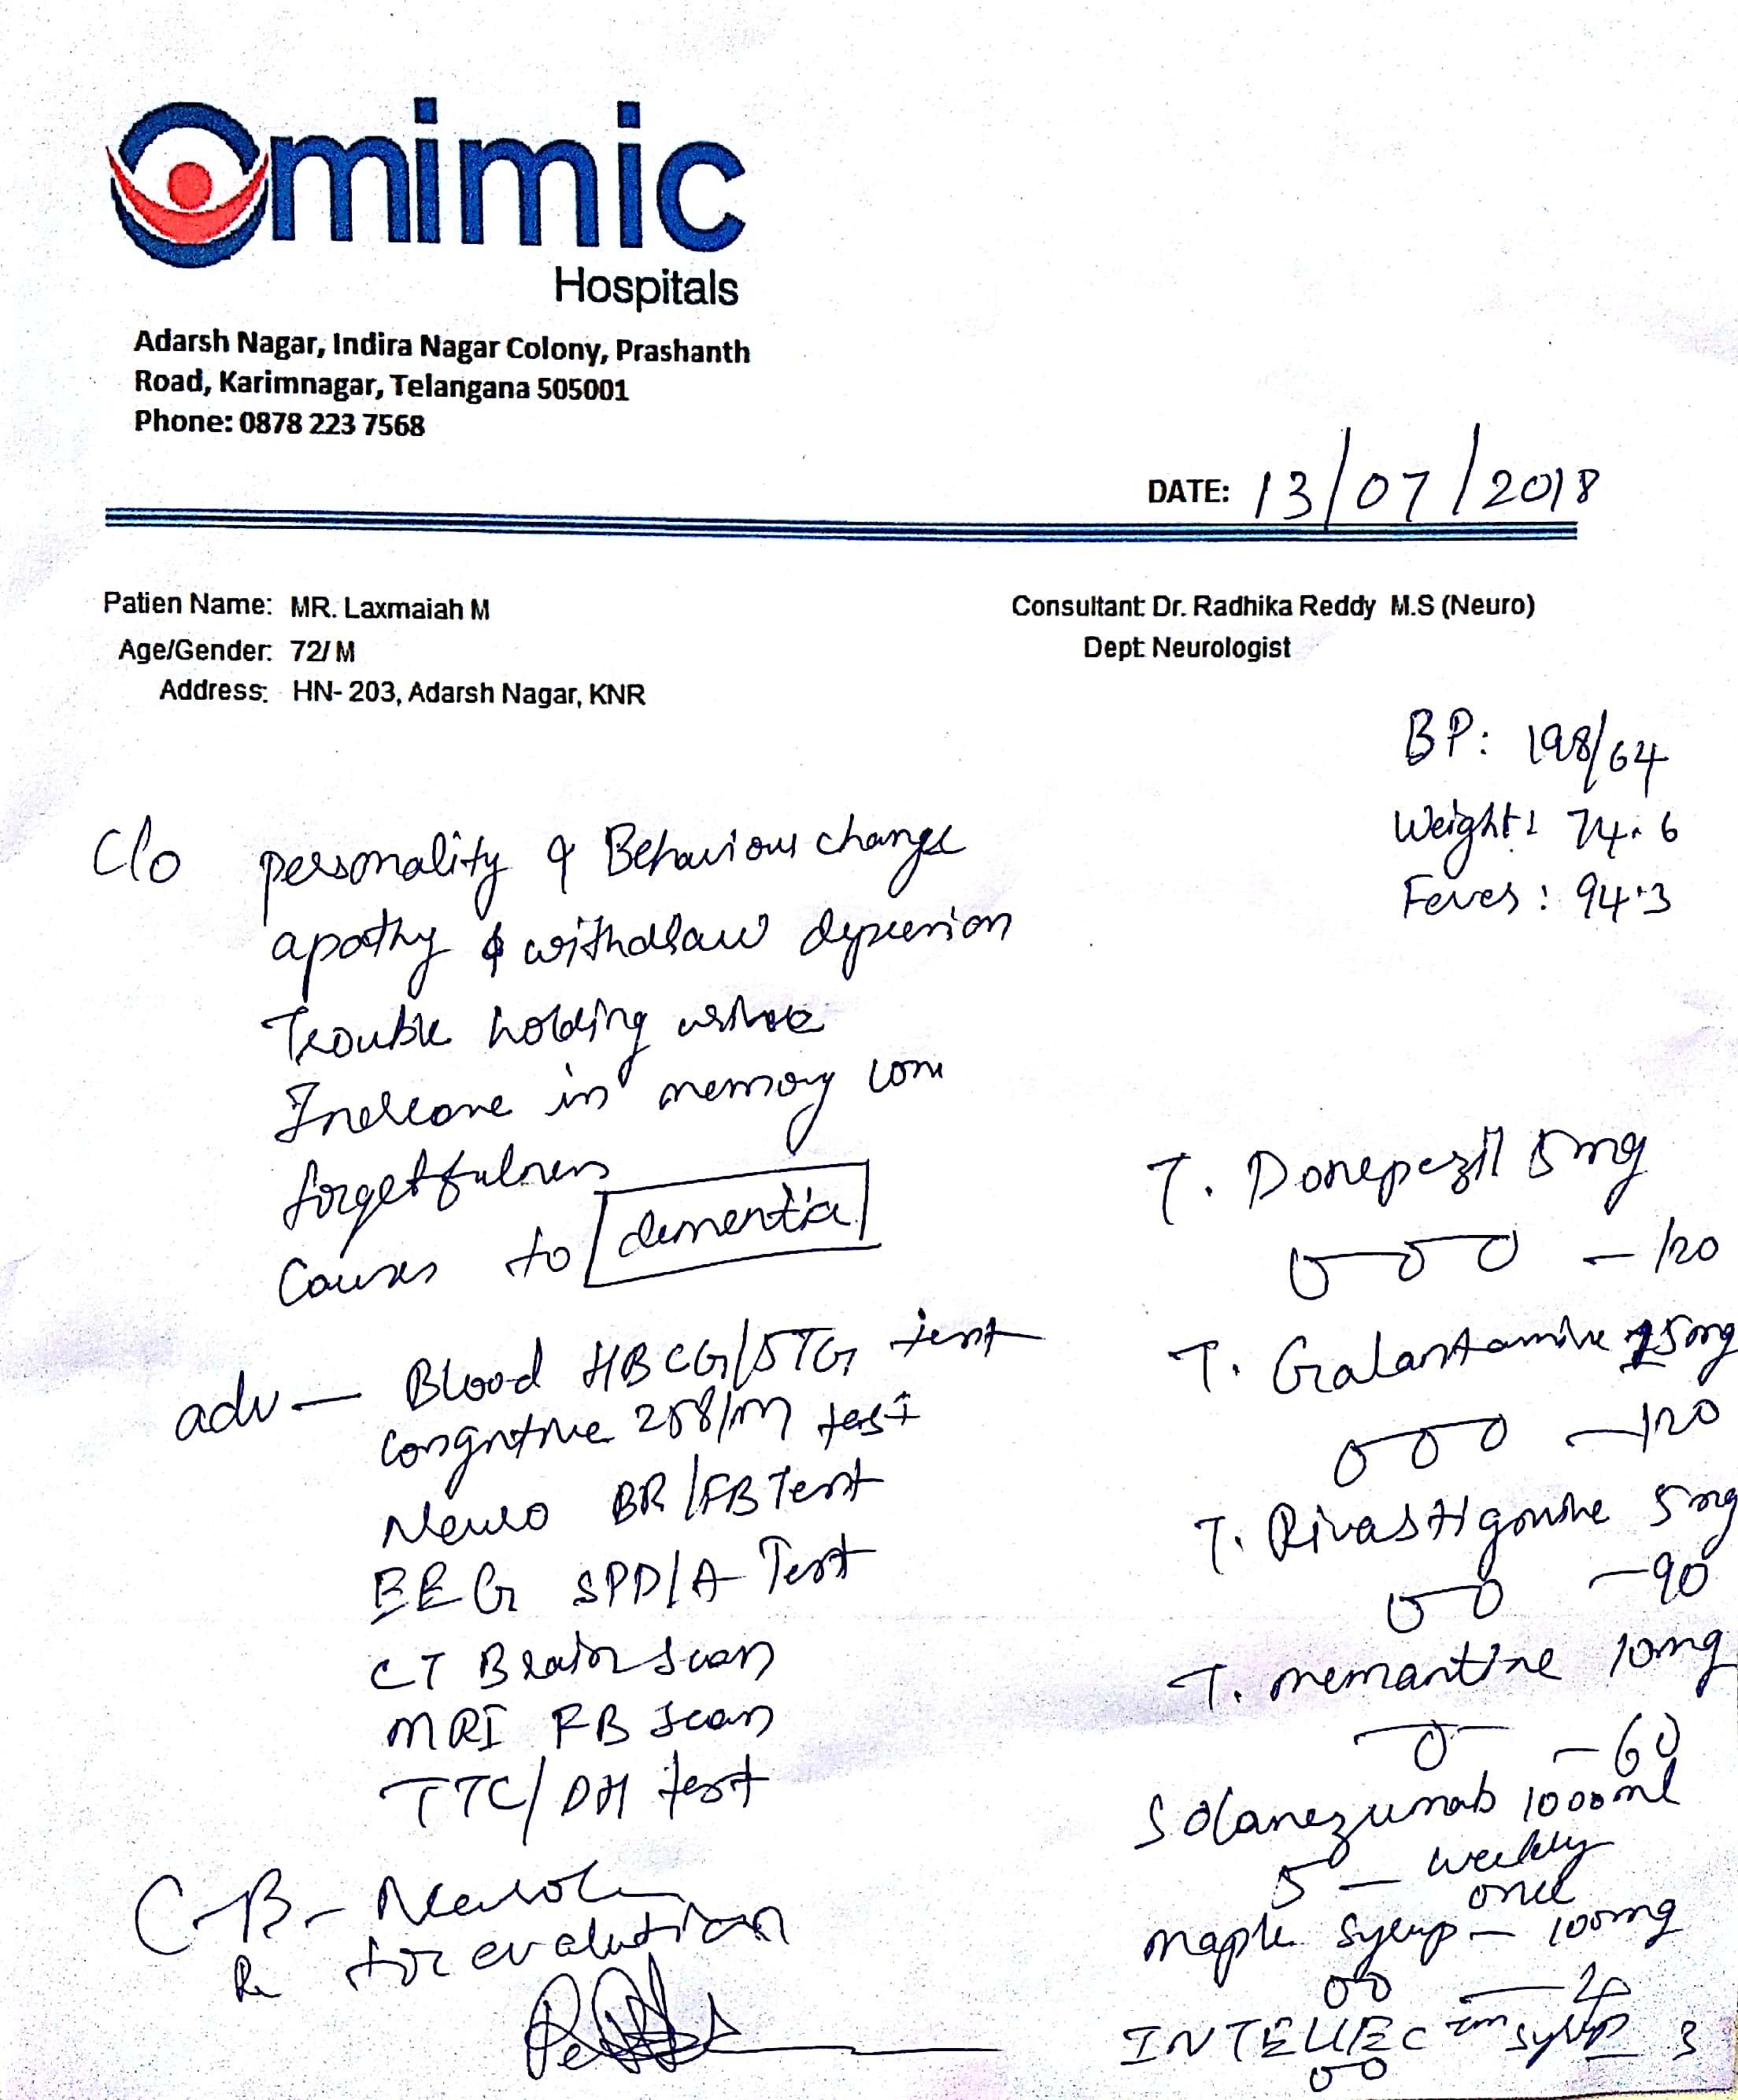 Omimic
Hospitals
Adarsh Nagar, Indira Nagar Colony, Prashanth
Road, Karimnagar, Telangana 505001
Phone: 0878 223 7568
DATE: 13/07/2018
Patien Name: MR. Laxmaiah M
Age/Gender: 72/ M
Address: HN- 203, Adarsh Nagar, KNR
Consultant: Dr. Radhika Reddy M.S (Neuro)
Dept: Neurologist
BP: 198/64
Weight: 74.6
Fever: 94.3
C/o personality & Behaviour change
apathy & withdraw depression
Trouble holding urine
Increase in memory loss
forgetfulness
Causes to dementia
adv — Blood HBCG/STG test
Congnitive 258/M test
Neuro BR/FB Test
EEG SPD/A Test
CT Brain Scan
MRI FB Scan
TTC/DH test
C-B-
for evalution
T. Donepezil 5mg
— 120
T. Galantamine 25mg
— 120
T. Rivastigmine 5mg
— 90
T. memantine 10mg
— 60
Solanezumab 1000ml
5 — weekly
once
maple syrup — 100mg
INTELLEC syrup 3